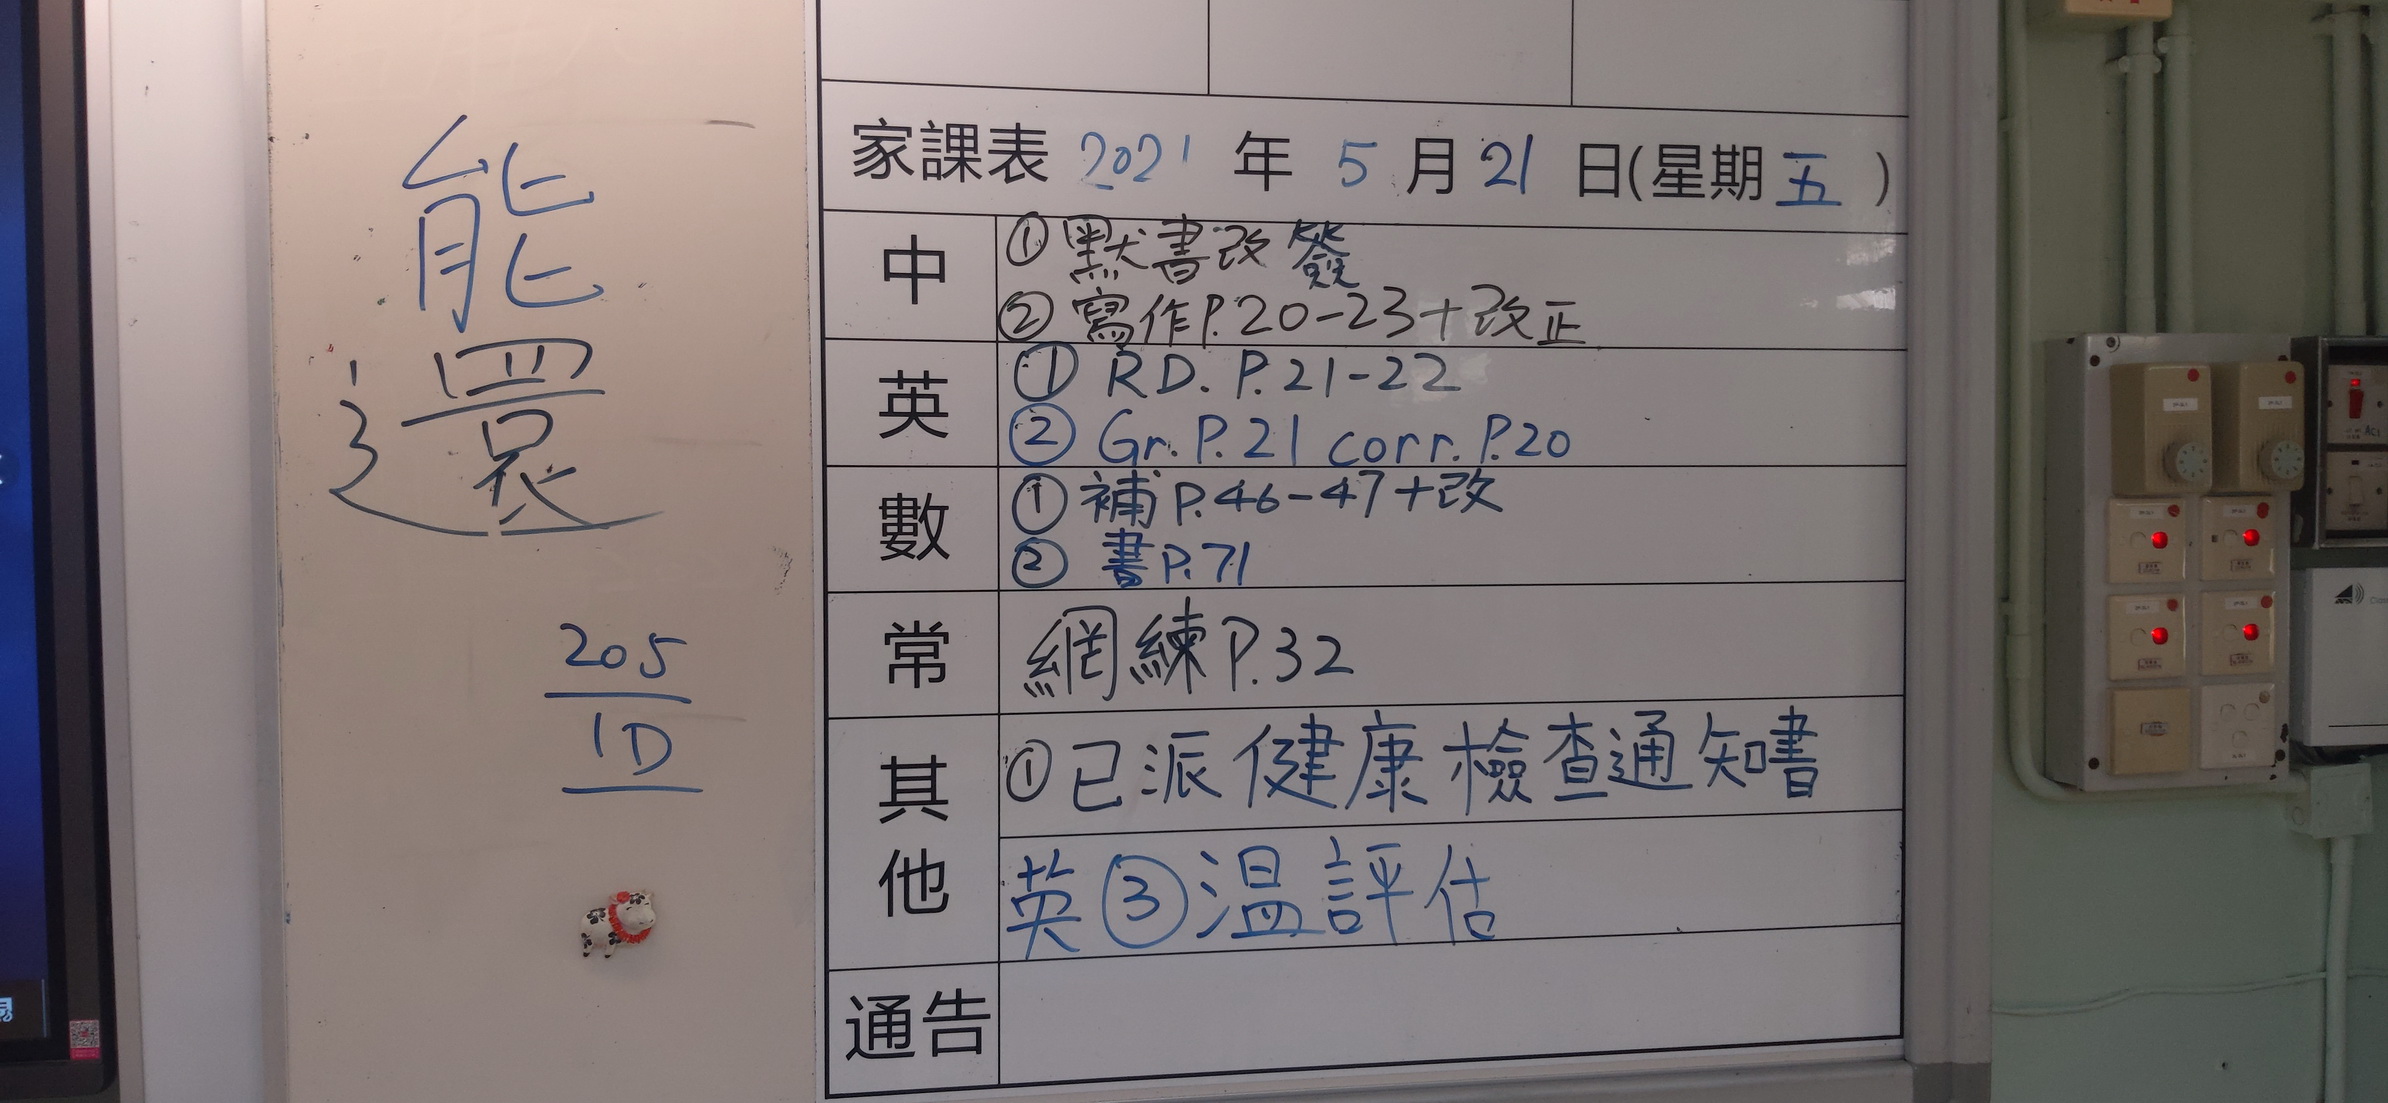 能
還
205
1D
家課表 2021 年 5 月 21 日(星期五)
中
① 默書改簽
② 寫作P.20-23+改正
英
① RD. P.21-22
② Gr. P.21 corr. P.20
數
① 補P.46-47+改
② 書P.71
常
網練P.32
其他
①已派健康檢查通知書
英③溫評估
通告